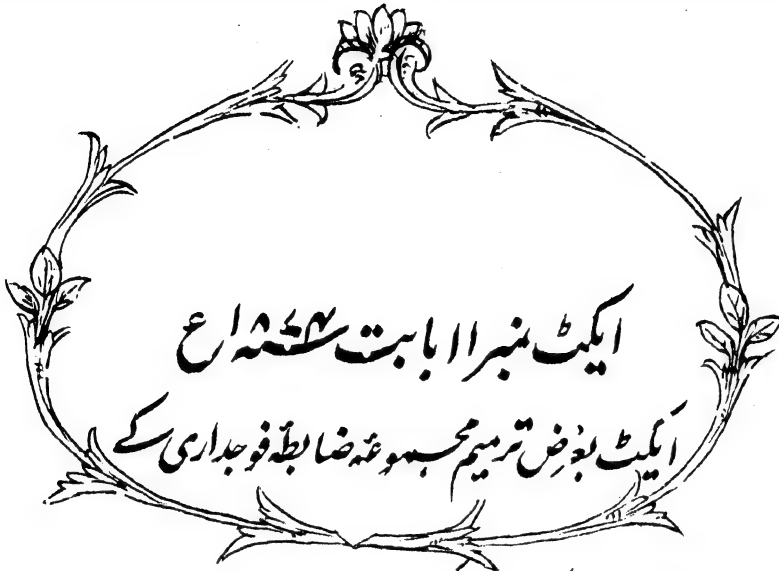 ایکٹ نمبر ۱۱ بابت سنہ ۱۸۷۴ع
ایکٹ بغرض ترمیم مجموعہ ضابطہ فوجداری کے